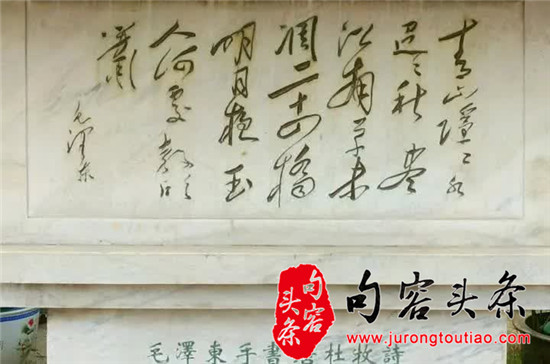 青山隱〻水
迢〻秋盡
江南草未
凋二十四橋
明月夜玉
人何處教吹
簫
毛澤東
句容头条
句容头条
www.jurongtoutiao.com
毛澤東手書 杜牧詩